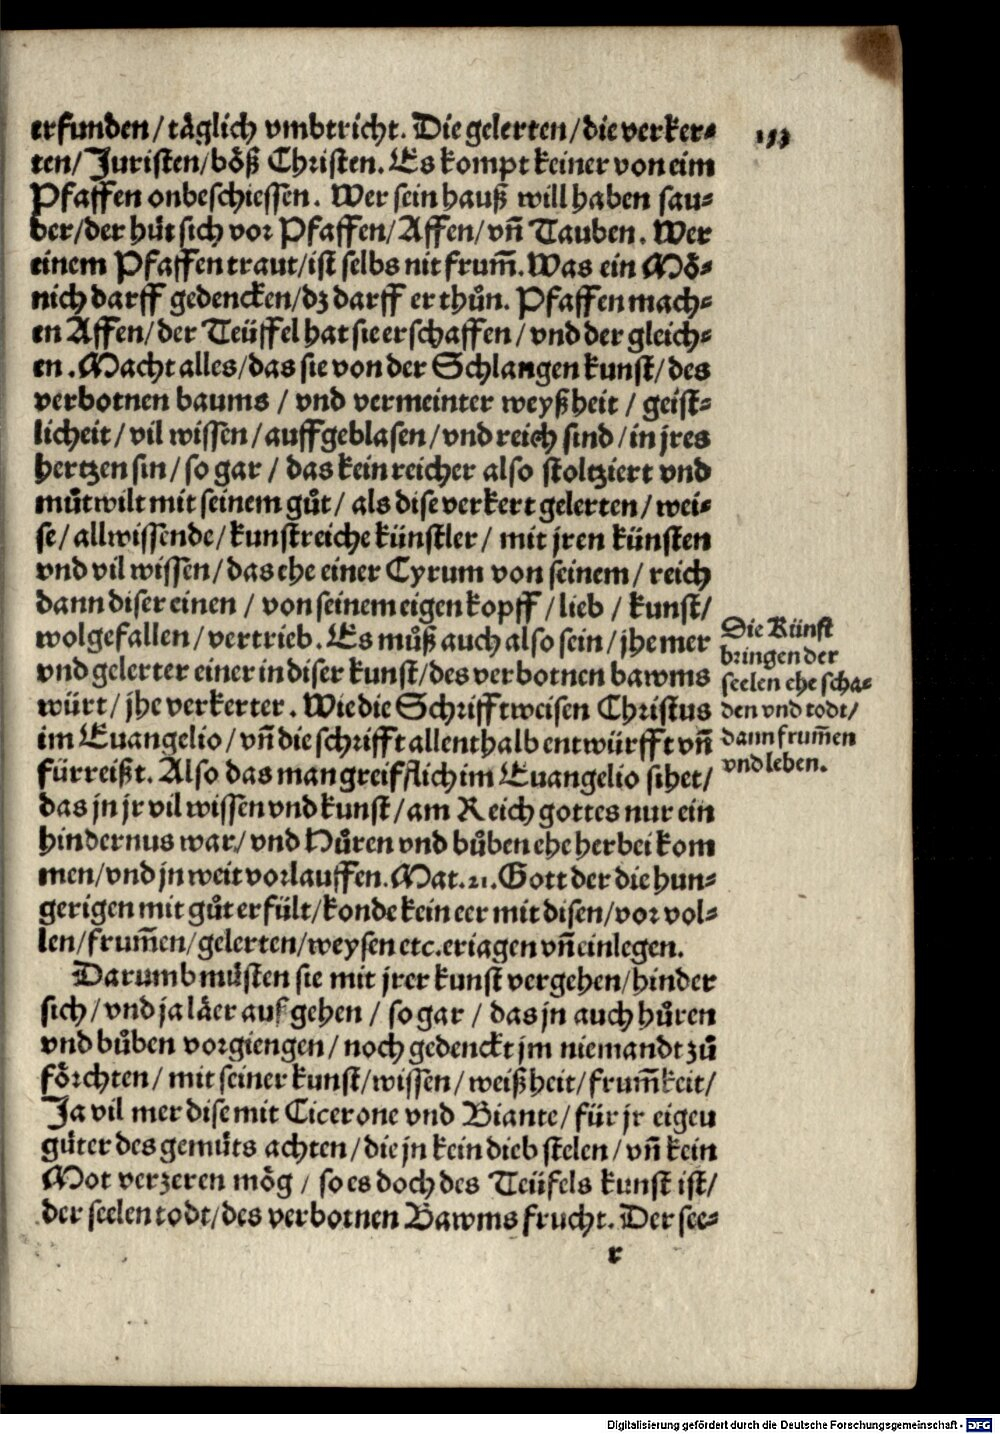 erfunden/täglich vmbtricht. Die gelerten/die verker-
153
ten/Juristen/bôß Christen. Es kompt keiner von eim
Pfaffen onbeschiessen. Wer sein hauß will haben sau-
ber/der hůt sich vor Pfaffen/Affen/vñ Tauben. Wer
einem Pfaffen traut/ist selbs nit frum̃. Was ein Mô-
nich darff gedencken/dz darff er thůn. Pfaffen mach-
en Affen/der Teüffel hat sie erschaffen/vnd der gleich-
en. Macht alles/das sie von der Schlangen kunst/des
verbotnen baums/vnd vermeinter weyßheit/geist-
licheit/vil wissen/auffgeblasen/vnd reich sind/in jres
hertzen sin/so gar/das kein reicher also stoltziert vnd
můtwilt mit seinem gůt/als dise verkert gelerten/wei-
se/allwissende/kunstreiche künstler/mit jren künsten
vnd vil wissen/das ehe einer Cyrum von seinem/reich
dann diser einen/von seinem eigen kopff/lieb/kunst/
wolgefallen/vertrieb. Es můß auch also sein/jhe mer
vnd gelerter einer in diser kunst/des verbotnen bawms
würt/jhe verkerter. Wie die Schrifftweisen Christus
im Euangelio/vñ die schrifft allenthalb entwürfft vñ
fürreißt. Also das man greifflich im Euangelio sihet/
das jn jr vil wissen vnd kunst/am Reich gottes nur ein
hindernus war/vnd Hůren vnd bůben ehe herbei kom
men/vnd jn weit vorlauffen. Mat. 21. Gott der die hun-
gerigen mit gůt erfült/konde kein eer mit disen/vor vol-
len/frum̃en/gelerten/weysen etc. eriagen vñ einlegen.
Darumb můsten sie mit jrer kunst vergehen/hinder
sich/vnd ja läer ausgehen/so gar/das jn auch hůren
vnd bůben vorgiengen/noch gedenckt jm niemandt zů
fôrchten/mit seiner kunst/wissen/weißheit/frum̃keit/
Ja vil mer dise mit Cicerone vnd Biante/für jr eigen
gůter des gemůts achten/die jn kein dieb stelen/vñ kein
Mot verzeren môg/so es doch des Teüfels kunst ist/
der seelen todt/des verbotnen Bawms frucht. Der see-
r
Die Künst
bringen der
seelen ehe scha-
den vnd todt/
dann frum̃en
vnd leben.
Digitalisierung gefördert durch die Deutsche Forschungsgemeinschaft - DFG